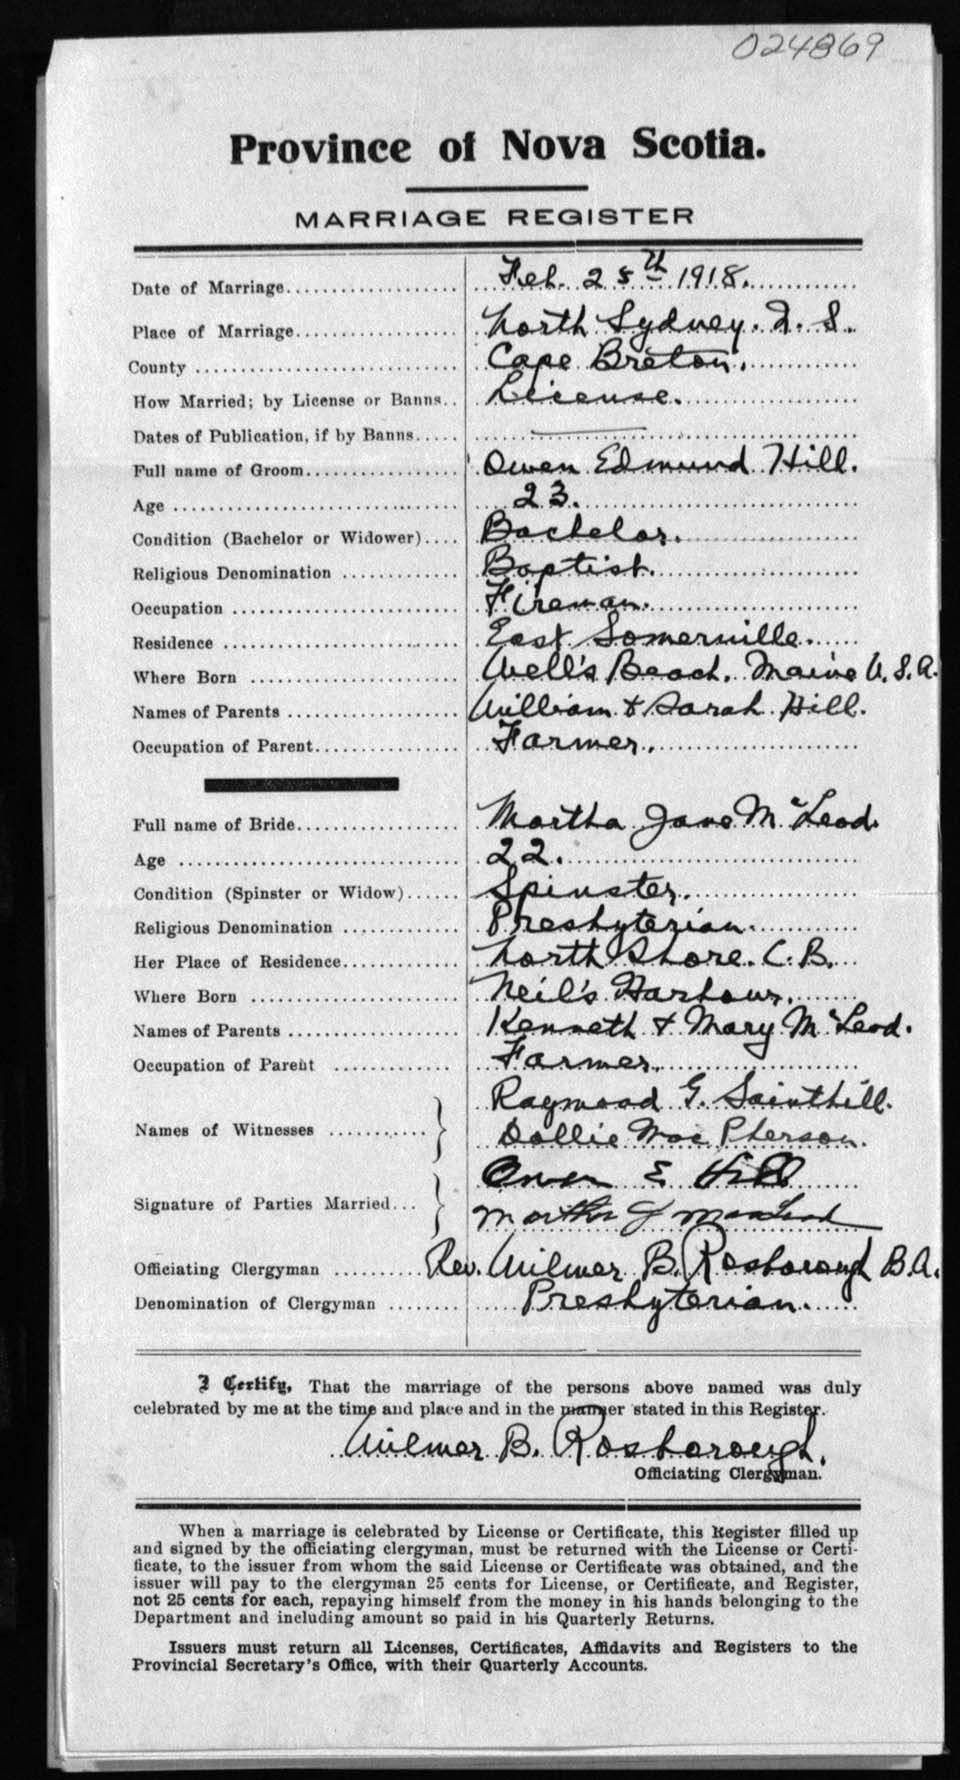 024869
Province of Nova Scotia.
MARRIAGE REGISTER
Date of Marriage Feb. 25th 1918.
Place of Marriage North Sydney. N. S.
County Cape Breton.
How Married; by License or Banns License.
Dates of Publication, if by Banns
Full name of Groom Owen Edmund Hill.
Age 23.
Condition (Bachelor or Widower) Bachelor.
Religious Denomination Baptist.
Occupation Fireman.
Residence East Somerville.
Where Born Well's Beach. Maine U.S.A.
Names of Parents William & Sarah Hill.
Occupation of Parent Farmer.
Full name of Bride Martha Jane McLeod.
Age 22.
Condition (Spinster or Widow) Spinster.
Religious Denomination Presbyterian.
Her Place of Residence North Shore. C.B.
Where Born Neil's Harbour.
Names of Parents Kenneth & Mary McLeod.
Occupation of Parent Farmer.
Names of Witnesses Raymond G. Sainthill.
Dollie MacPherson.
Signature of Parties Married Owen E Hill
Martha J MacLeod
Officiating Clergyman Rev. Wilmer B. Rosborough B.A.
Denomination of Clergyman Presbyterian.
I Certify, That the marriage of the persons above named was duly
celebrated by me at the time and place and in the manner stated in this Register.
Wilmer B. Rosborough.
Officiating Clergyman.
When a marriage is celebrated by License or Certificate, this Register filled up
and signed by the officiating clergyman, must be returned with the License or Certi-
ficate, to the issuer from whom the said License or Certificate was obtained, and the
issuer will pay to the clergyman 25 cents for License, or Certificate, and Register,
not 25 cents for each, repaying himself from the money in his hands belonging to the
Department and including amount so paid in his Quarterly Returns.
Issuers must return all Licenses, Certificates, Affidavits and Registers to the
Provincial Secretary's Office, with their Quarterly Accounts.